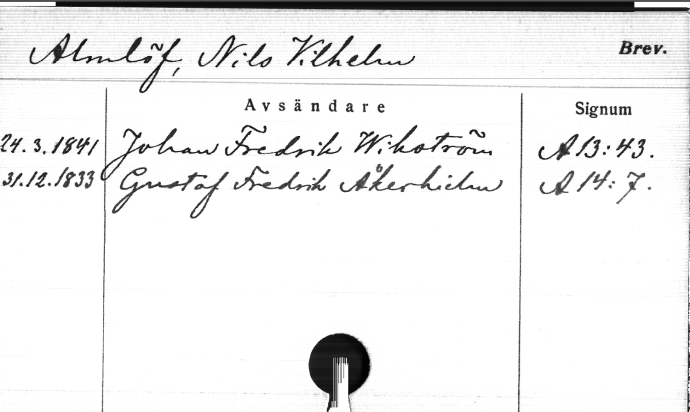 Almlöf, Nils Vilhelm Brev.
Avsändare Signum
24.3.1841 Johan Fredrik Wikström A13:43.
31.12.1833 Gustaf Fredrik Åkerhielm A14:7.